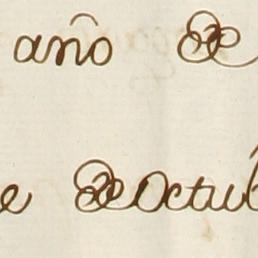 año de
e de Octub